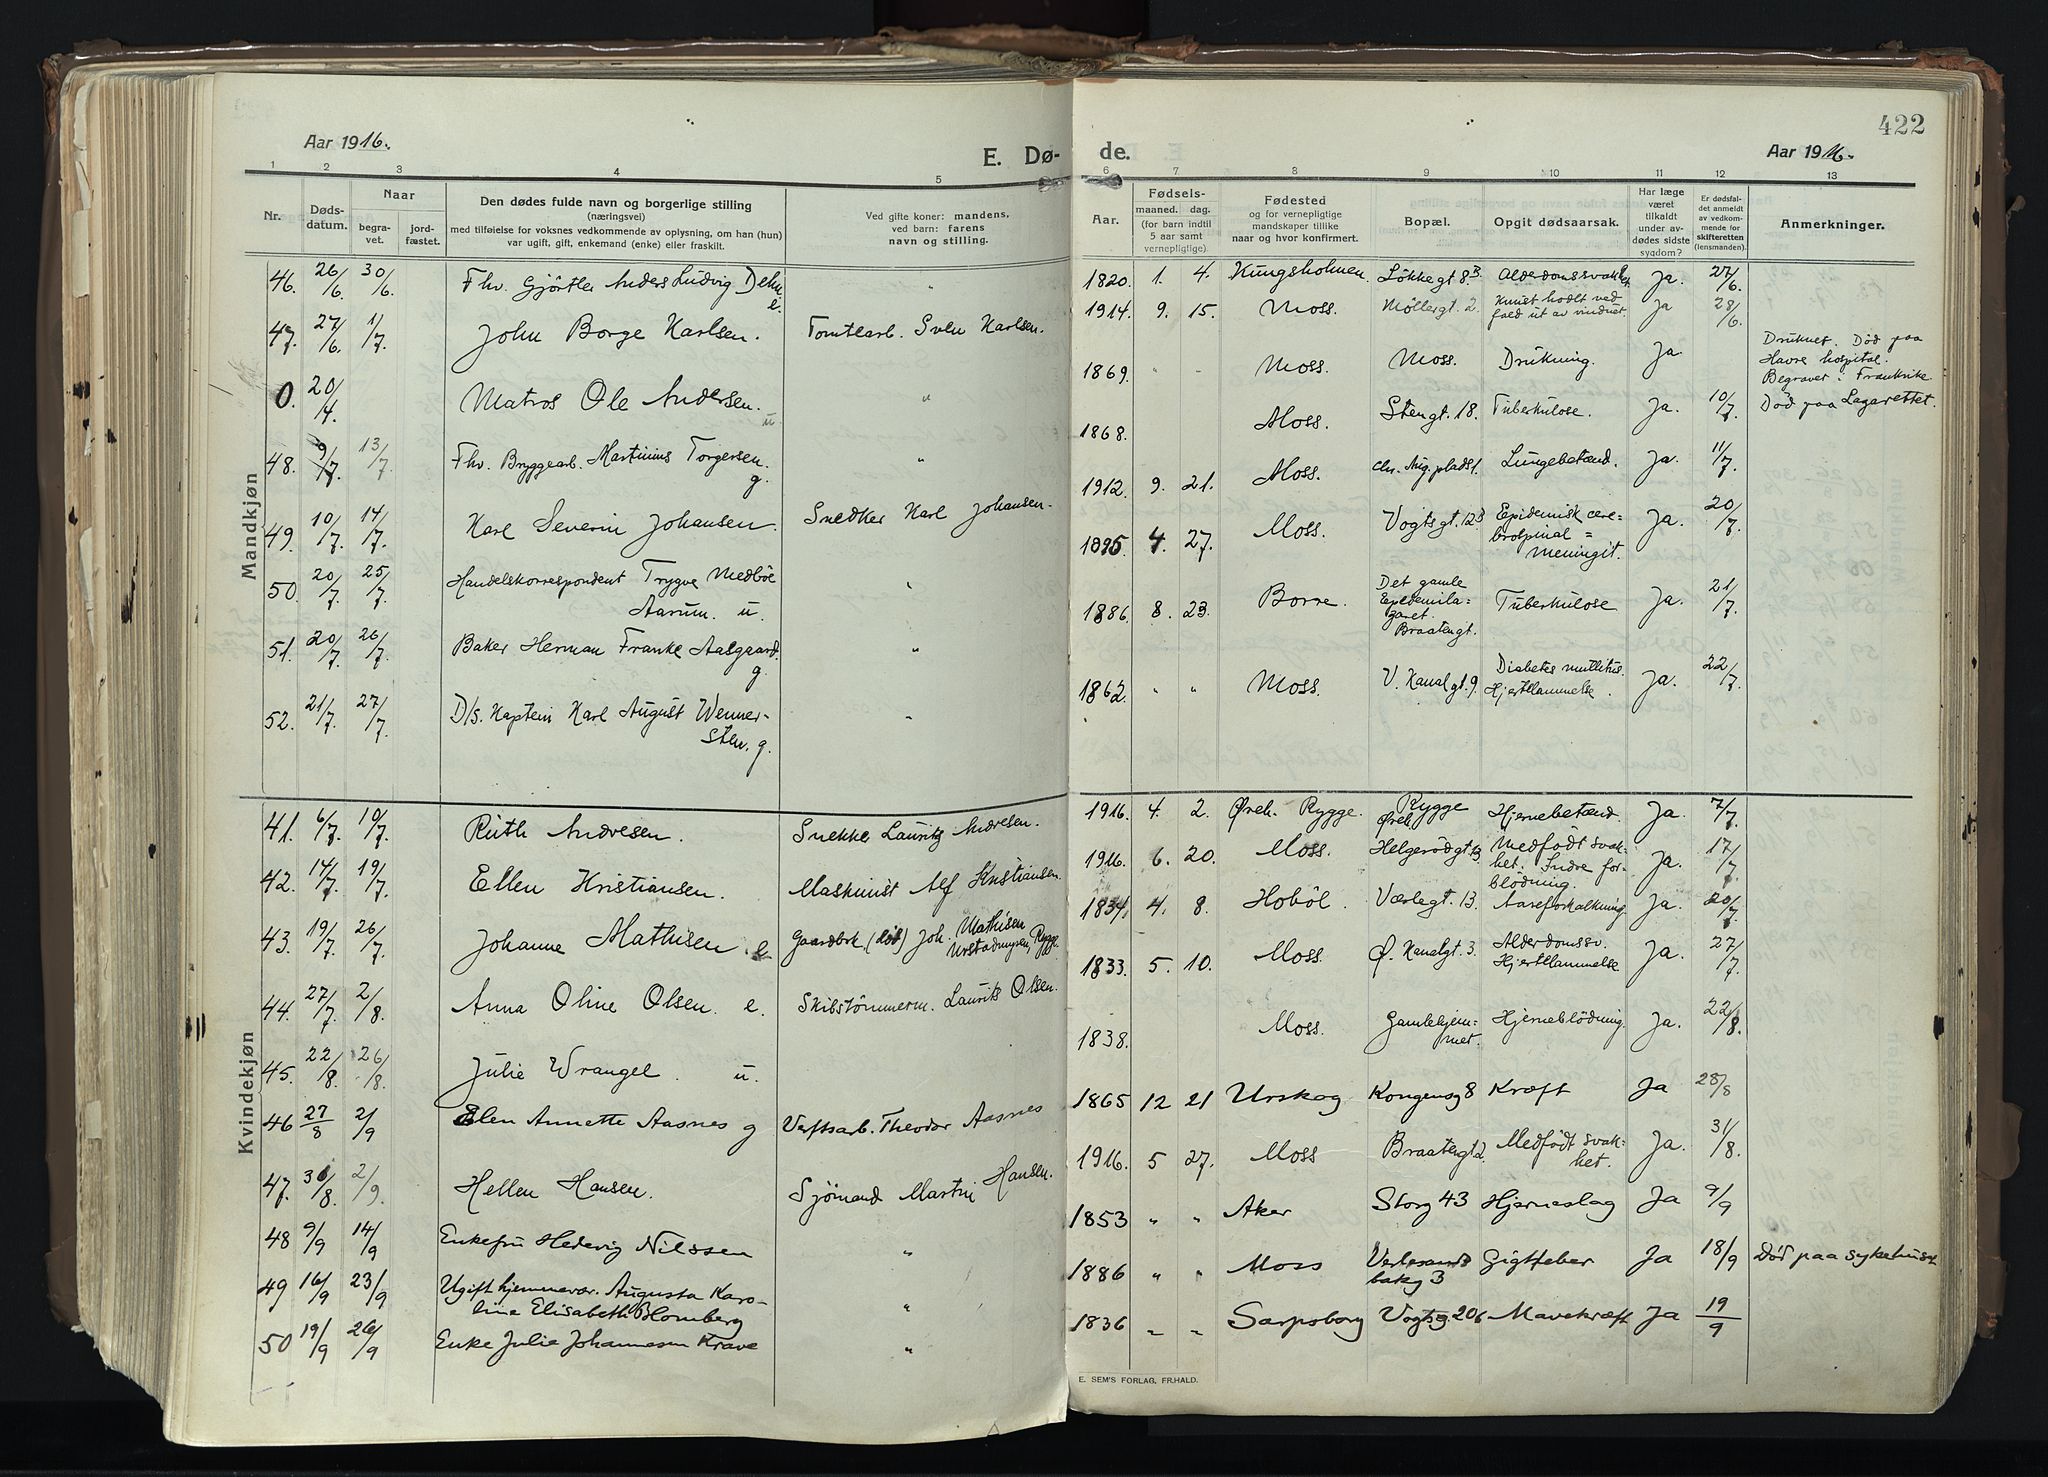 422
Aar 1916.
E. Dø-
de.
Aar 1916.
1 2 3 4 5 6 7 8 9 10 11 12 13
Nr.
Døds-
datum.
Naar
begra-
vet.
jord-
fæstet.
Den dødes fulde navn og borgerlige stilling
(næringsvei)
med tilføielse for voksnes vedkommende av oplysning, om han (hun)
var ugift, gift, enkemand (enke) eller fraskilt.
Ved gifte koner: mandens,
ved barn: farens
navn og stilling.
Aar.
Fødsels-
maaned. dag.
(for barn indtil
5 aar samt
vernepligtige).
Fødested
og for vernepligtige
mandskaper tillike
naar og hvor konfirmert.
Bopæl.
Opgit dødsaarsak.
Har læge
været
tilkaldt
under av-
dødes sidste
sygdom?
Er dødsfal-
det anmeldt
av vedkom-
mende for
skifteretten
(lensmanden).
Anmerkninger.
Mandkjøn
46. 26/6. 30/6. Fhv. Gjörtler Anders Ludvig Dehn
e.
"
1820. 1. 4. Kungsholmen. Løkkegt 8B Alderdomssvakhet Ja. 27/6.
47. 27/6. 1/7. John Borge Karlsen. Tomtearb. Sven Karlsen.
1914. 9. 15. Moss. Møllergt. 2. Knust hodet ved
fald ut av vinduet. Ja 28/6.
0. 20/4. Matros Ole Andersen. u. "
1869. " - Moss. Moss. Drukning. Ja.
Druknet. Død paa
Havre hospital.
Begravet i Frankrike.
48. 9/7. 13/7. Fhv. Bryggearb. Martinius Torgersen.
g.
"
1868. Moss. Stengt. 18. Tuberkulose. Ja. 10/7. Død paa Lazarettet.
49. 10/7. 14/7. Karl Severin Johansen. Snedker Karl Johansen.
1912. 9. 21. Moss. Chr. Aug. plads 1. Lungebetænd. Ja. 11/7.
50. 20/7. 25/7. Handelskorrespondent Trygve Medböe
Aarum. u.
"
1895. 4. 27. Moss. Vogtsgt. 12B Epidemisk cere=
brospinal=
meningit. Ja. 20/7.
51. 20/7. 26/7. Baker Herman Franke Aasgaard.
g.
"
1886. 8. 23. Borre. Det gamle
Epidemila=
zaret.
Braatengt. Tuberkulose Ja. 21/7.
52. 21/7. 27/7. D/s. Kaptein Karl August Wenner-
sten. g.
"
1862. " " Moss. V. Kanalgt. 9. Diabetes mellitus.
Hjertelammelse. Ja. 22/7.
Kvindekjøn
41. 6/7. 10/7. Ruth Andresen. Snekker Lauritz Andresen.
1916. 4. 2. Øreh. Rygge. Rygge
Øreh. Hjernebetænd. Ja. 7/7.
42. 14/7. 19/7. Ellen Kristiansen. Maskinist Alf Kristiansen.
1916. 6. 20. Moss. Helgerödgt 13. Medfødt svak-
het. Indre for-
blödning. Ja. 17/7.
43. 19/7. 26/7. Johanne Mathisen. e. Gaardbrk. (död) Joh. Mathisen
Urstadmyren, Rygge.
1834. 4. 8. Hobøl. Værlegt. 13. Aareforkalkning. Ja. 20/7.
44. 27/7. 2/8. Anna Oline Olsen. e. Skibstömmerm. Laurits Olsen.
1833. 5. 10. Moss. Ø. Kanalgt. 3. Alderdomssv.
Hjertelammelse Ja. 27/7.
45. 22/8. 26/8. Julie Wrangel. u.
1838. Moss. Gamlehjem-
met. Hjerneblödning. Ja. 22/8.
46 27/8 2/9 Elen Annette Aasnes g Verftsarb. Theodor Aasnes
1865 12 21 Urskog Kongensg 8 Kræft Ja 28/8
47. 30/8. 2/9. Hellen Hansen. Sjömand Martin Hansen.
1916. 5 27. Moss Braatengt 2. Medfödt svak-
het. Ja. 31/8.
48 9/9 14/9 Enkefru Hedevig Nilssen "
1853 " " Aker Storg 43 Hjerneslag Ja 9/9
49 16/9 23/9 Ugift hjemmevær. Augusta Karo-
line Elisabeth Blomberg "
1886 " " Moss Verlesands
bakg 3 Gigtfeber Ja 18/9 Död paa sykehuset
50 19/9 26/9 Enke Julie Johannesen Krave "
1836 " " Sarpsborg Vogtsg. 20b Mavekræft Ja 19/9
E. SEM'S FORLAG, FR.HALD.